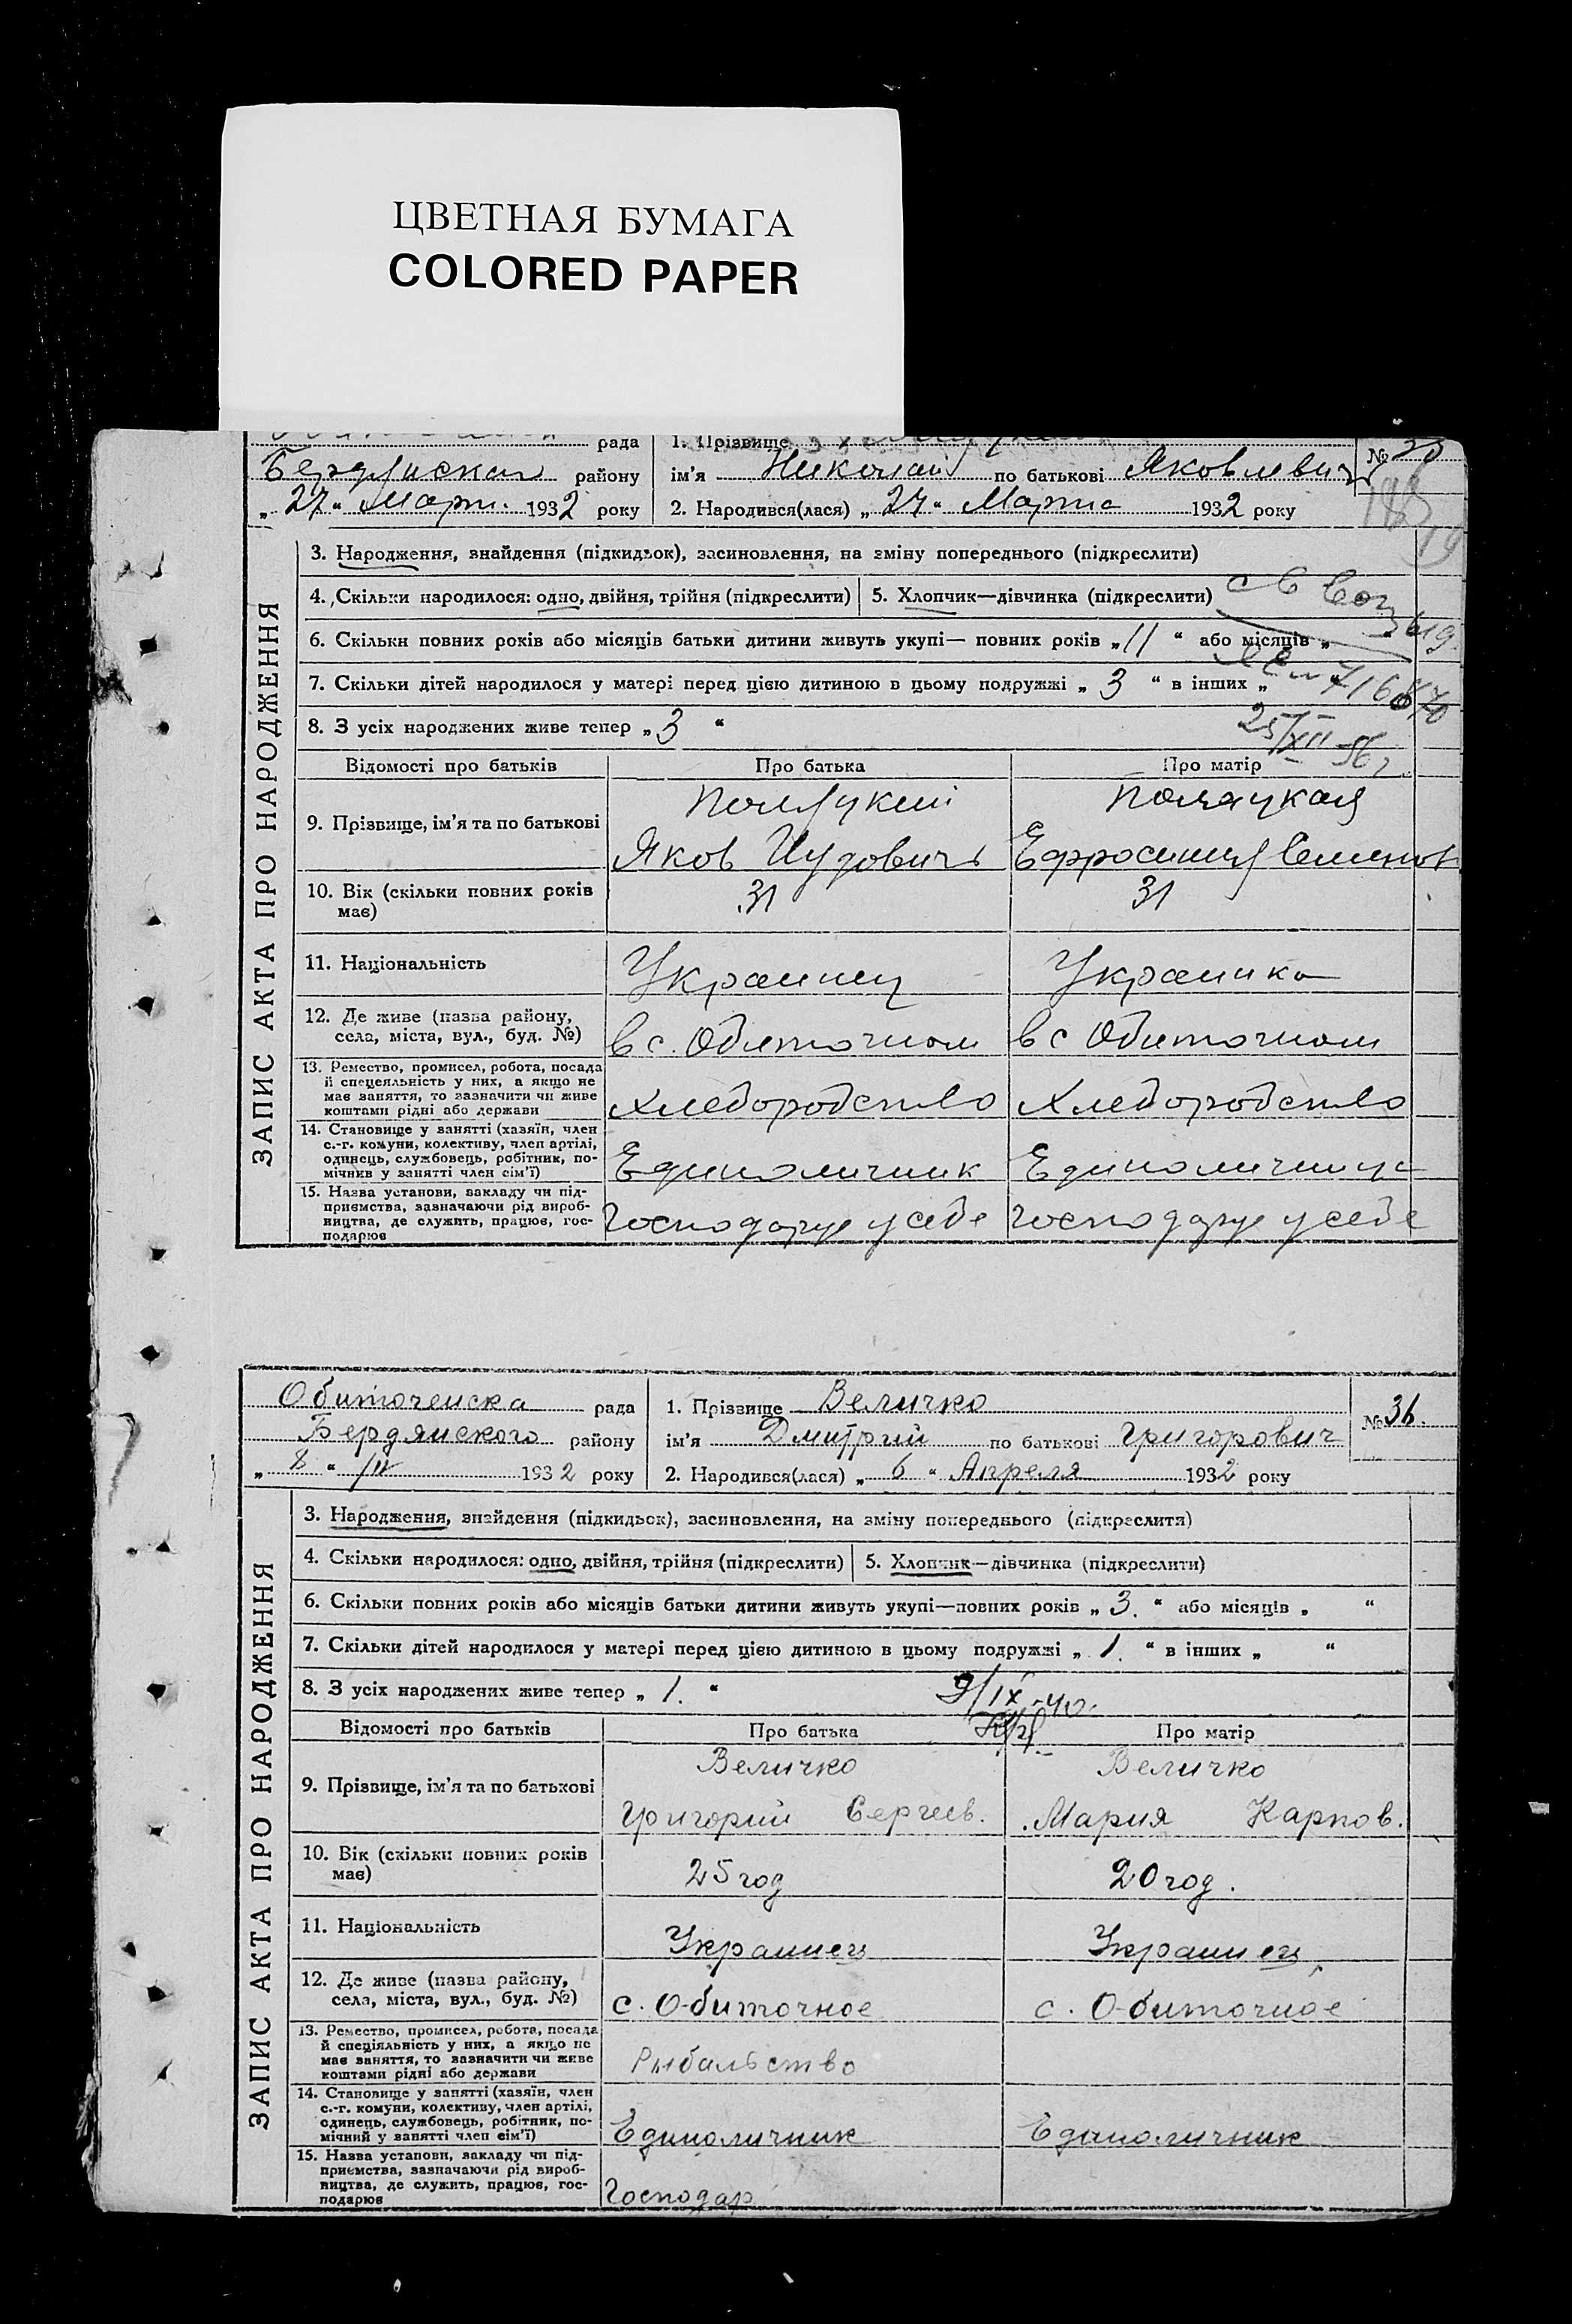 ЦВЕТНАЯ БУМАГА
COLORED PAPER
рада
1. Прізвище
№
району
ім’я Николай по батькові Яковлевич
„ 27 “ Март. 1932 року
2. Народився(лася) „ 27 “ Марта 1932 року
ЗАПИС АКТА ПРО НАРОДЖЕННЯ
3. Народження, знайдення (підкидьок), засиновлення, на зміну попереднього (підкреслити)
4. Скільки народилося: одно, двійня, трійня (підкреслити)
5. Хлопчик—дівчинка (підкреслити)
6. Скільки повних років або місяців батьки дитини живуть укупі— повних років „ 11 “ або місяців „
7. Скільки дітей народилося у матері перед цією дитиною в цьому подружжі „ 3 “ в інших „
8. З усіх народжених живе тепер „ 3 “
25/XII 56
Відомості про батьків
Про батька
Про матір
9. Прізвище, ім’я та по батькові
Яков
Ефросиния Семенов
10. Вік (скільки повних років має)
31
31
11. Національність
Украинец
Украинка
12. Де живе (назва району, села, міста, вул., буд. №)
в с. Обиточном
в с Обиточном
13. Ремество, промисел, робота, посада
й спеціяльність у них, а якщо не
має заняття, то зазначити чи живе
коштами рідні або держави
Хлебородство
Хлебородство
14. Становище у занятті (хазяїн, член
с.-г. комуни, колективу, член артілі,
одинець, службовець, робітник, по-
мічник у занятті член сім’ї)
Единоличник
Единоличница
15. Назва установи, закладу чи під-
приємства, зазначаючи рід вироб-
ництва, де служить, працює, гос-
подарює
Господарує у себе
Господарує у себе
Обиточенска рада
1. Прізвище Величко
№ 36.
Бердянского району
ім’я Дмитрий по батькові Григорович
„ 8 “ /IV 1932 року
2. Народився(лася) „ 6 “ Апреля 1932 року
ЗАПИС АКТА ПРО НАРОДЖЕННЯ
3. Народження, знайдення (підкидьок), засиновлення, на зміну попереднього (підкреслити)
4. Скільки народилося: одно, двійня, трійня (підкреслити)
5. Хлопчик—дівчинка (підкреслити)
6. Скільки повних років або місяців батьки дитини живуть укупі—повних років „ 3. “ або місяців „ “
7. Скільки дітей народилося у матері перед цією дитиною в цьому подружжі „ 1. “ в інших „ “
8. З усіх народжених живе тепер „ 1. “
9/IX-40.
Відомості про батьків
Про батька
Про матір
9. Прізвище, ім’я та по батькові
Величко
Величко
Григорий Сергеев.
Мария Карпов.
10. Вік (скільки повних років має)
25 год
20 год.
11. Національність
Украинец
Украинец
12. Де живе (назва району, села, міста, вул., буд. №)
с. Обиточное
с. Обиточное
13. Ремество, промисел, робота, посада
й спеціяльність у них, а якщо не
має заняття, то зазначити чи живе
коштами рідні або держави
Рыбальство
14. Становище у занятті (хазяїн, член
с.-г. комуни, колективу, член артілі,
одинець, службовець, робітник, по-
мічний у занятті член сім’ї)
Единоличник
Единоличник
15. Назва установи, закладу чи під-
приємства, зазначаючи рід вироб-
ництва, де служить, працює, гос-
подарює
Господар